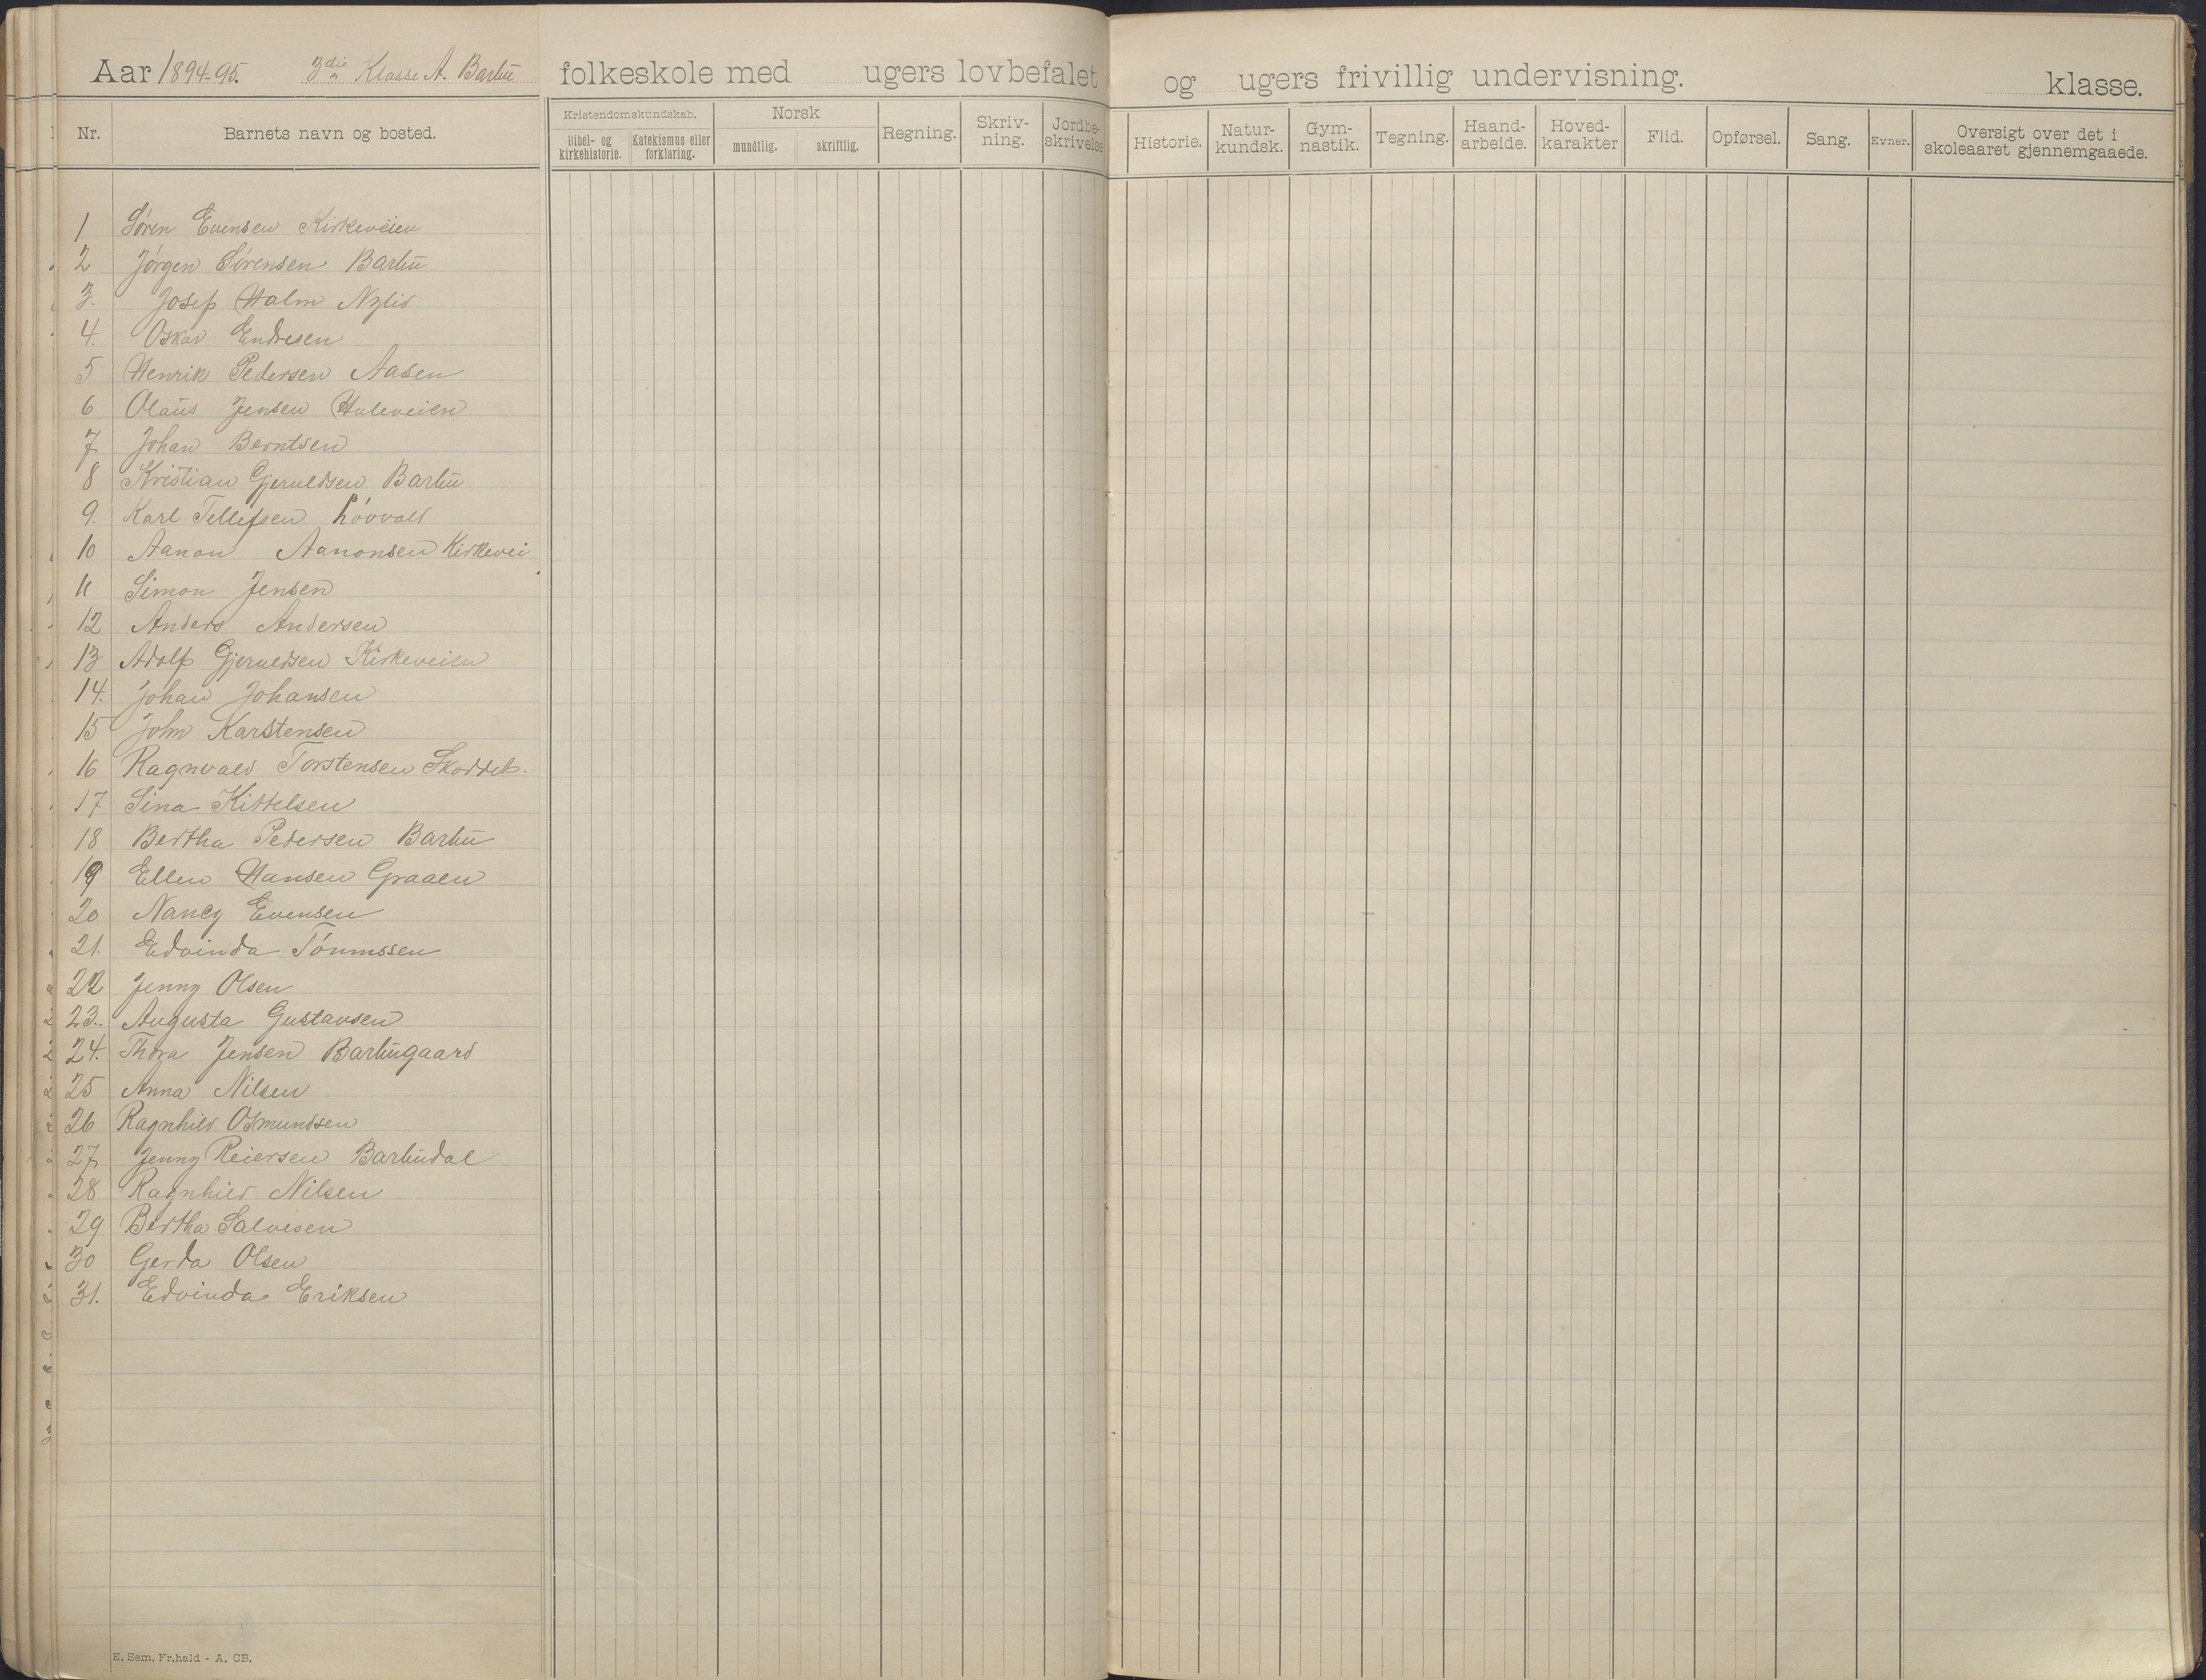 Aar 1894-95. 3die Klasse A. Barbu folkeskole med ugers lovbefalet og ugers frivillig undervisning. klasse.
Nr. Barnets navn og bosted. Kristendomskundskab. Bibel- og kirkehistorie. Katekismus eller forklaring. Norsk mundtlig. skriftlig. Regning. Skriv-ning. Jordbe-skrivelse Historie. Natur-kundsk. Gym-nastik. Tegning. Haand-arbeide. Hoved-karakter Flid. Opførsel. Sang. Evner. Oversigt over det i skoleaaret gjennemgaaede.
1 Søren Evensen Kirkeveien
2 Jørgen Sørensen Barbu
3. Josef Halm Nylid
4. Oskar Endresen
5 Henrik Pedersen Aasen
6 Olaus Jensen Huleveien
7 Johan Berntsen
8 Kristian Gjeruldsen Barbu
9. Karl Tellefsen Løvvold
10 Aanon Aanonsen Kirkevei
11 Simon Jensen
12 Anders Andersen
13 Adolf Gjeruldsen Kirkeveien
14. Johan Johansen
15 John Karstensen
16 Ragnvald Torstensen
17 Sina Kittelsen
18 Bertha Pedersen Barbu
19 Ellen Hansen Graaen
20 Nancy Evensen
21. Edvinda
22 Jenny Olsen
23. Augusta Gustavsen
24. Thora Jensen Barbugaard
25 Anna Nilsen
26 Ragnhild Osmundsen
27 Jenny Reiersen Barbudal
28 Ragnhild Nilsen
29 Bertha Salvesen
30 Gerda Olsen
31. Edvinda Eriksen
E. Sem, Fr.hald - A, CB.